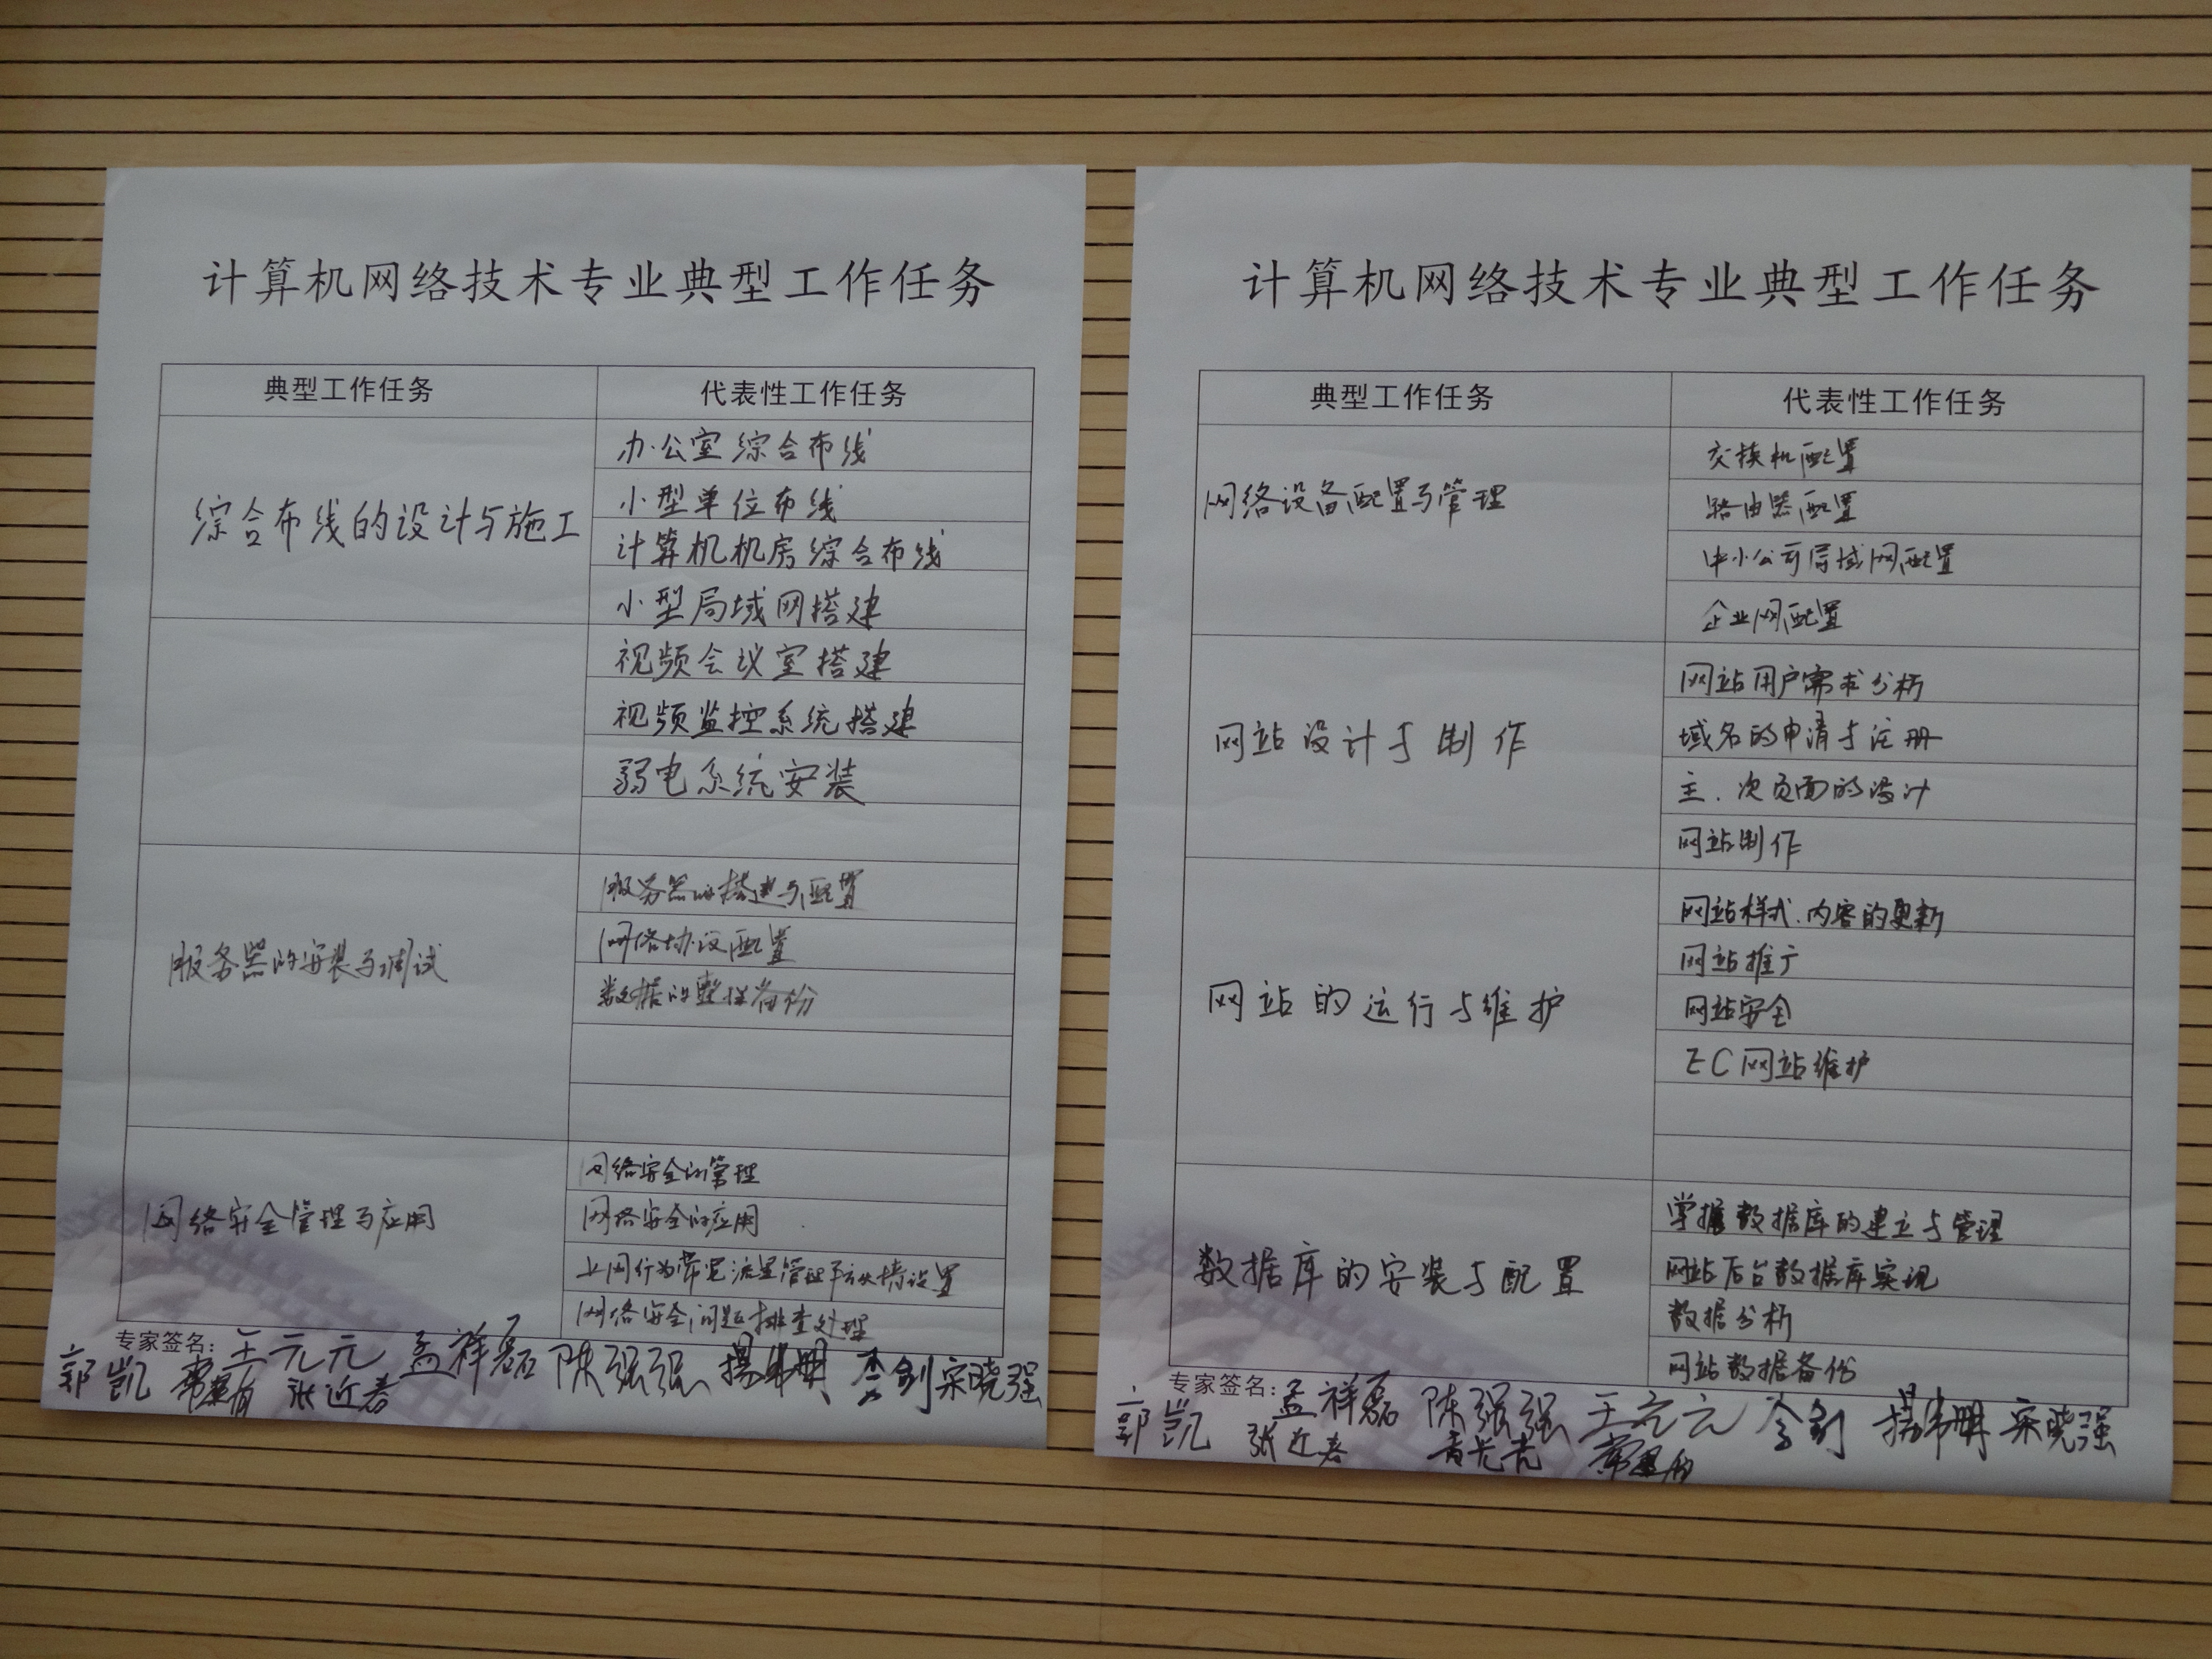 计算机网络技术专业典型工作任务
典型工作任务 代表性工作任务
综合布线的设计与施工
办公室综合布线
小型单位布线
计算机机房综合布线
小型局域网搭建
视频会议室搭建
视频监控系统搭建
弱电系统安装
服务器的安装与调试
服务器的搭建与配置
网络协议配置
数据的整理备份
网络安全管理与应用
网络安全的管理
网络安全的应用
上网行为带宽流量管理 设置
网络安全问题排查处理
专家签名: 王元元 孟祥磊 陈强强 杨伟鹏 李剑 宋晓强
郭凯 张近春
计算机网络技术专业典型工作任务
典型工作任务 代表性工作任务
网络设备配置与管理
交换机配置
路由器配置
中小公司局域网配置
企业网配置
网站设计与制作
网站用户需求分析
域名的申请与注册
主、次页面的设计
网站制作
网站的运行与维护
网站样式、内容的更新
网站推广
网站安全
EC网站维护
数据库的安装与配置
掌握数据库的建立与管理
网站后台数据库实现
数据分析
网站数据备份
专家签名: 孟祥磊 陈强强 王元元 李剑 杨伟鹏 宋晓强
郭凯 张近春